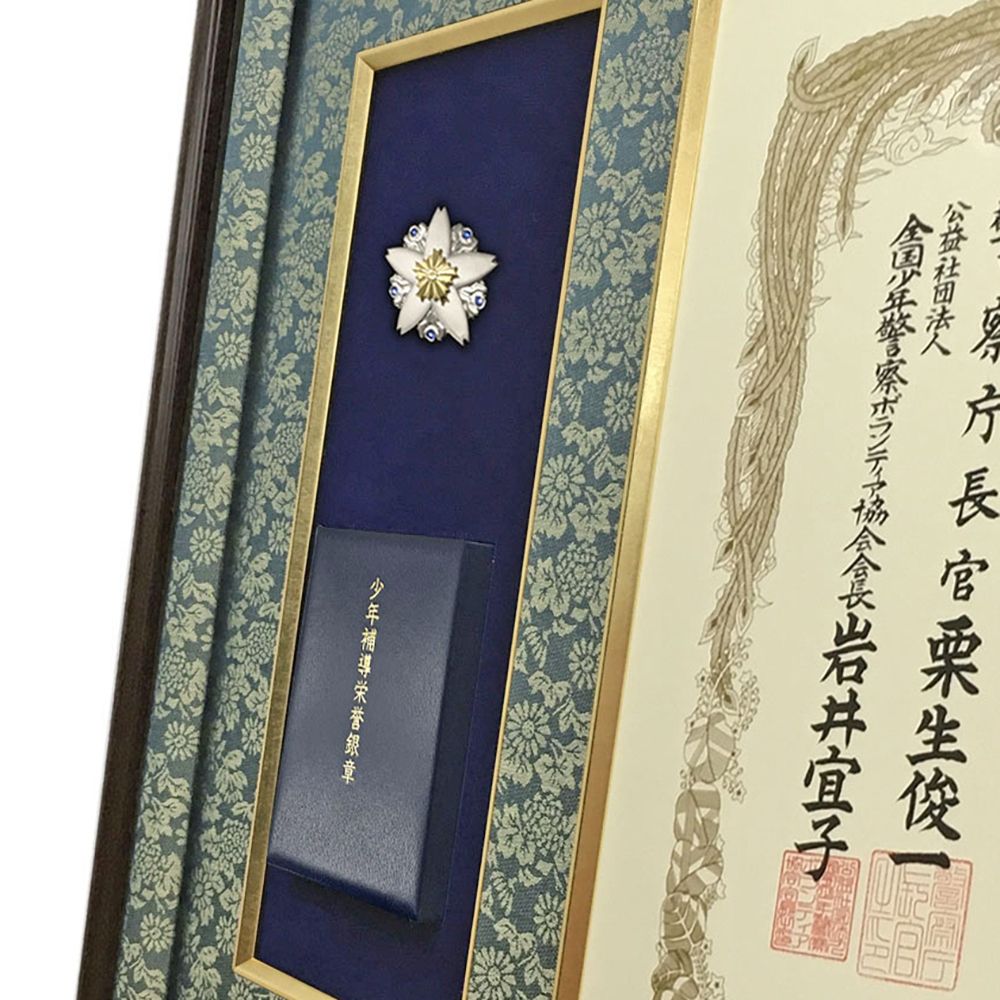 警察庁長官栗生俊一
公益社団法人
全国少年警察ボランティア協会会長岩井宜子
少年補導栄誉銀章